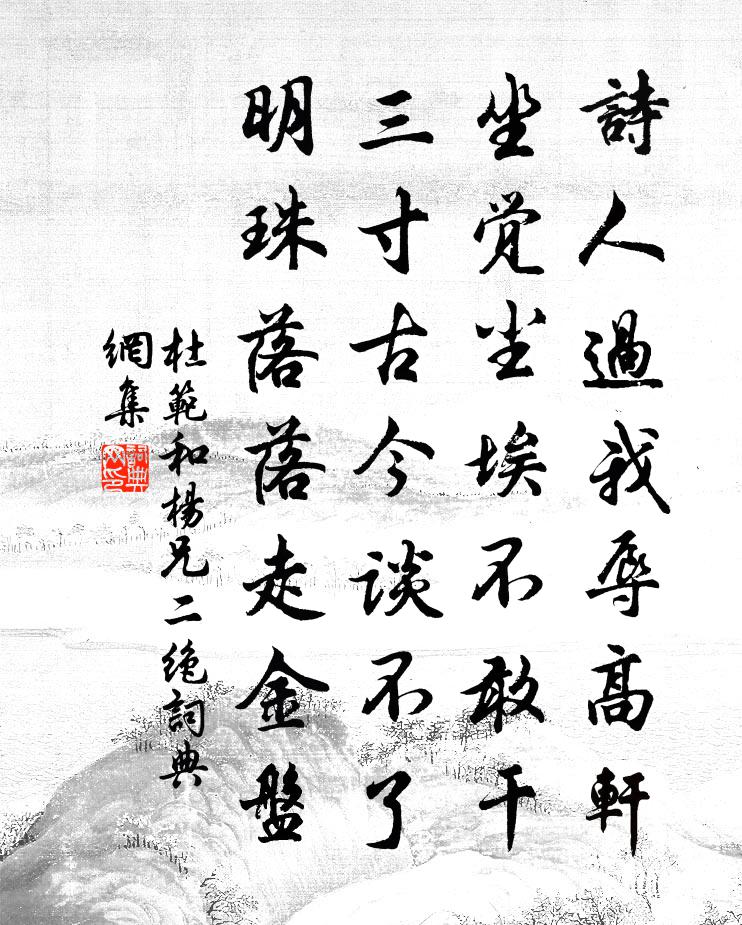 詩人過我辱高軒
坐覚尘埃不敢干
三寸古今談不了
明珠落落走金盤
杜範和楊兄二绝詞典
網集
詞典
网印